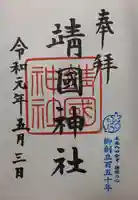 奉拝
靖國神社
靖國神社
令和元年五月三日
御創立百五十年